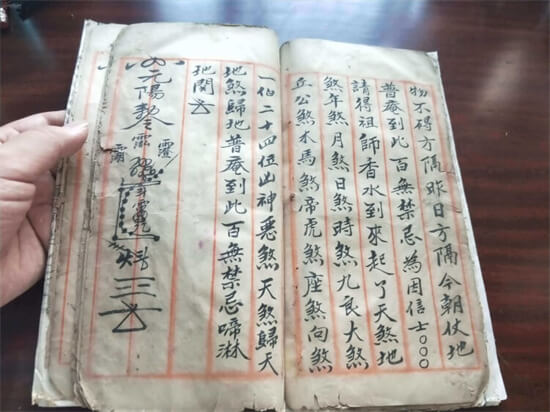 物不碍方隅昨日方隅今朝伏地
普庵到此百無禁忌為因信士〇〇〇
請得祖師香水到來起了天煞地
煞年煞月煞日煞時煞九良大煞
丘公煞木馬煞帝虎煞座煞向煞
一伯二十四位出神惡煞天煞歸天
地煞歸地普庵到此百無禁忌啼淋
地関
元陽